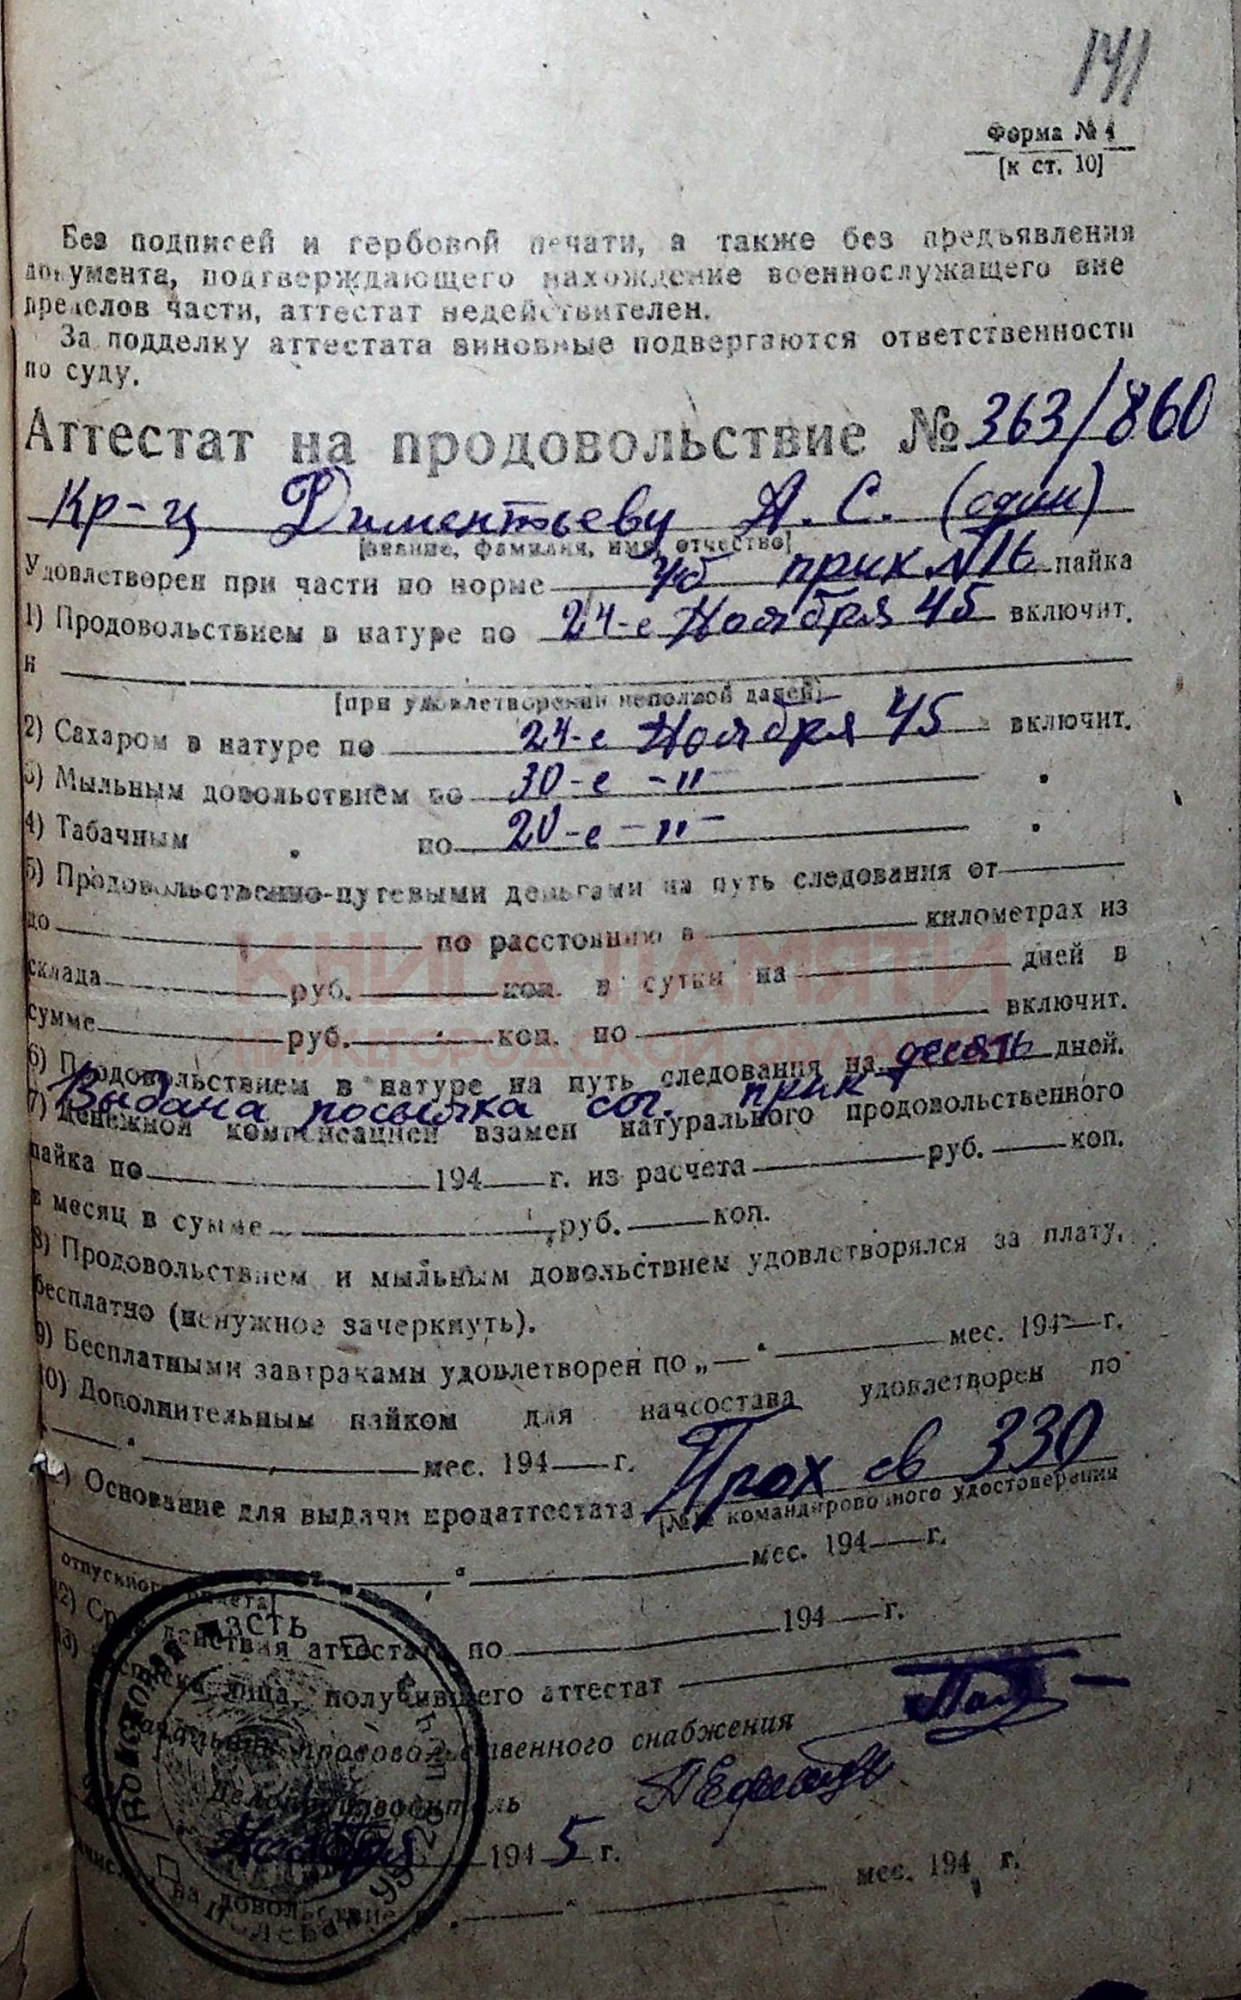 141
Форма № 1
[к ст. 10]
Без подписей и гербовой печати, а также без предъявления
документа, подтверждающего нахождение военнослужащего вне
пределов части, аттестат недействителен.
За подделку аттестата виновные подвергаются ответственности
по суду.
Аттестат на продовольствие № 363/860
Кр-ц Диментьеву А. С. (один)
[звание, фамилия, имя, отчество]
Удовлетворен при части по норме прик N16 пайка
1) Продовольствием в натуре по 24-е Ноября 45 включит.
и
[при удовлетворении неполной дачей]
2) Сахаром в натуре по 24-е Ноября 45 включит.
3) Мыльным довольствием по 30-е -"-
4) Табачным " по 20-е -"-
5) Продовольственно-путевыми деньгами на путь следования от
до по расстоянию в километрах из
склада руб. коп. в сутки на дней в
сумме руб. коп. по включит.
КНИГА ПАМЯТИ
НИЖЕГОРОДСКОЙ ОБЛАСТИ
6) Продовольствием в натуре на путь следования на десять дней.
Выдана посылка сог. прик
7) Денежной компенсацией взамен натурального продовольственного
пайка по 194 г. из расчета руб. коп.
в месяц в сумме руб. коп.
8) Продовольствием и мыльным довольствием удовлетворялся за плату,
бесплатно (ненужное зачеркнуть).
9) Бесплатными завтраками удовлетворен по „ “ мес. 194 г.
10) Дополнительным пайком для начсостава удовлетворен по
“ мес. 194 г.
Основание для выдачи продаттестата Прох св 330
[№№ командировочного удостоверения
отпускного билета]
“ мес. 194 г.
12) Срок действия аттестата по 194 г.
13) Расписка лица, получившего аттестат
Начальник продовольственного снабжения
Делопроизводитель
Ноября 1945 г.
Зачислен на довольствие с „ “ мес. 194 г.
Войсковая часть
Полевая